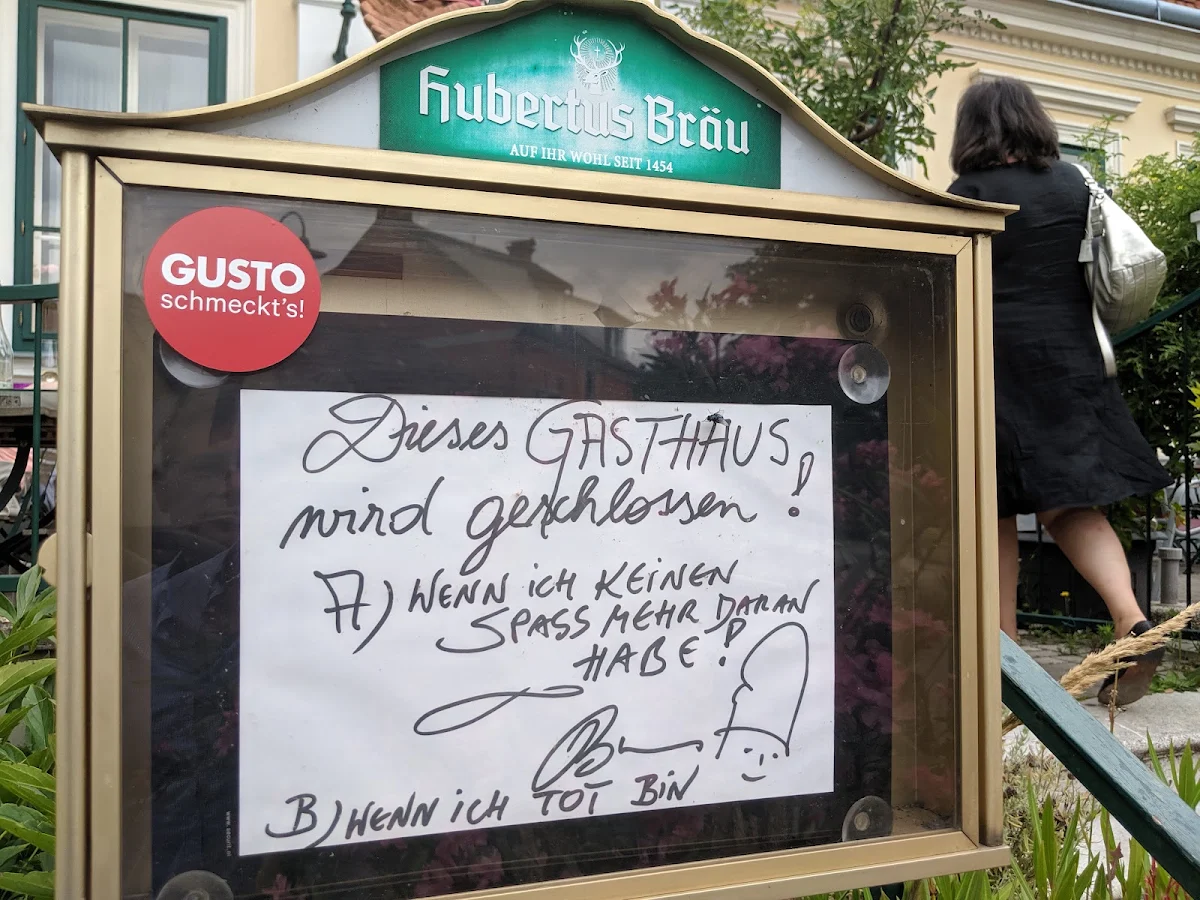 Hubertus Bräu
AUF IHR WOHL SEIT 1454
GUSTO
schmeckt's!
Dieses GASTHAUS
wird geschlossen!
A) WENN iCH KEiNEN
SPASS MEHR DARAN
HABE!
B) WENN iCH TOT BiN